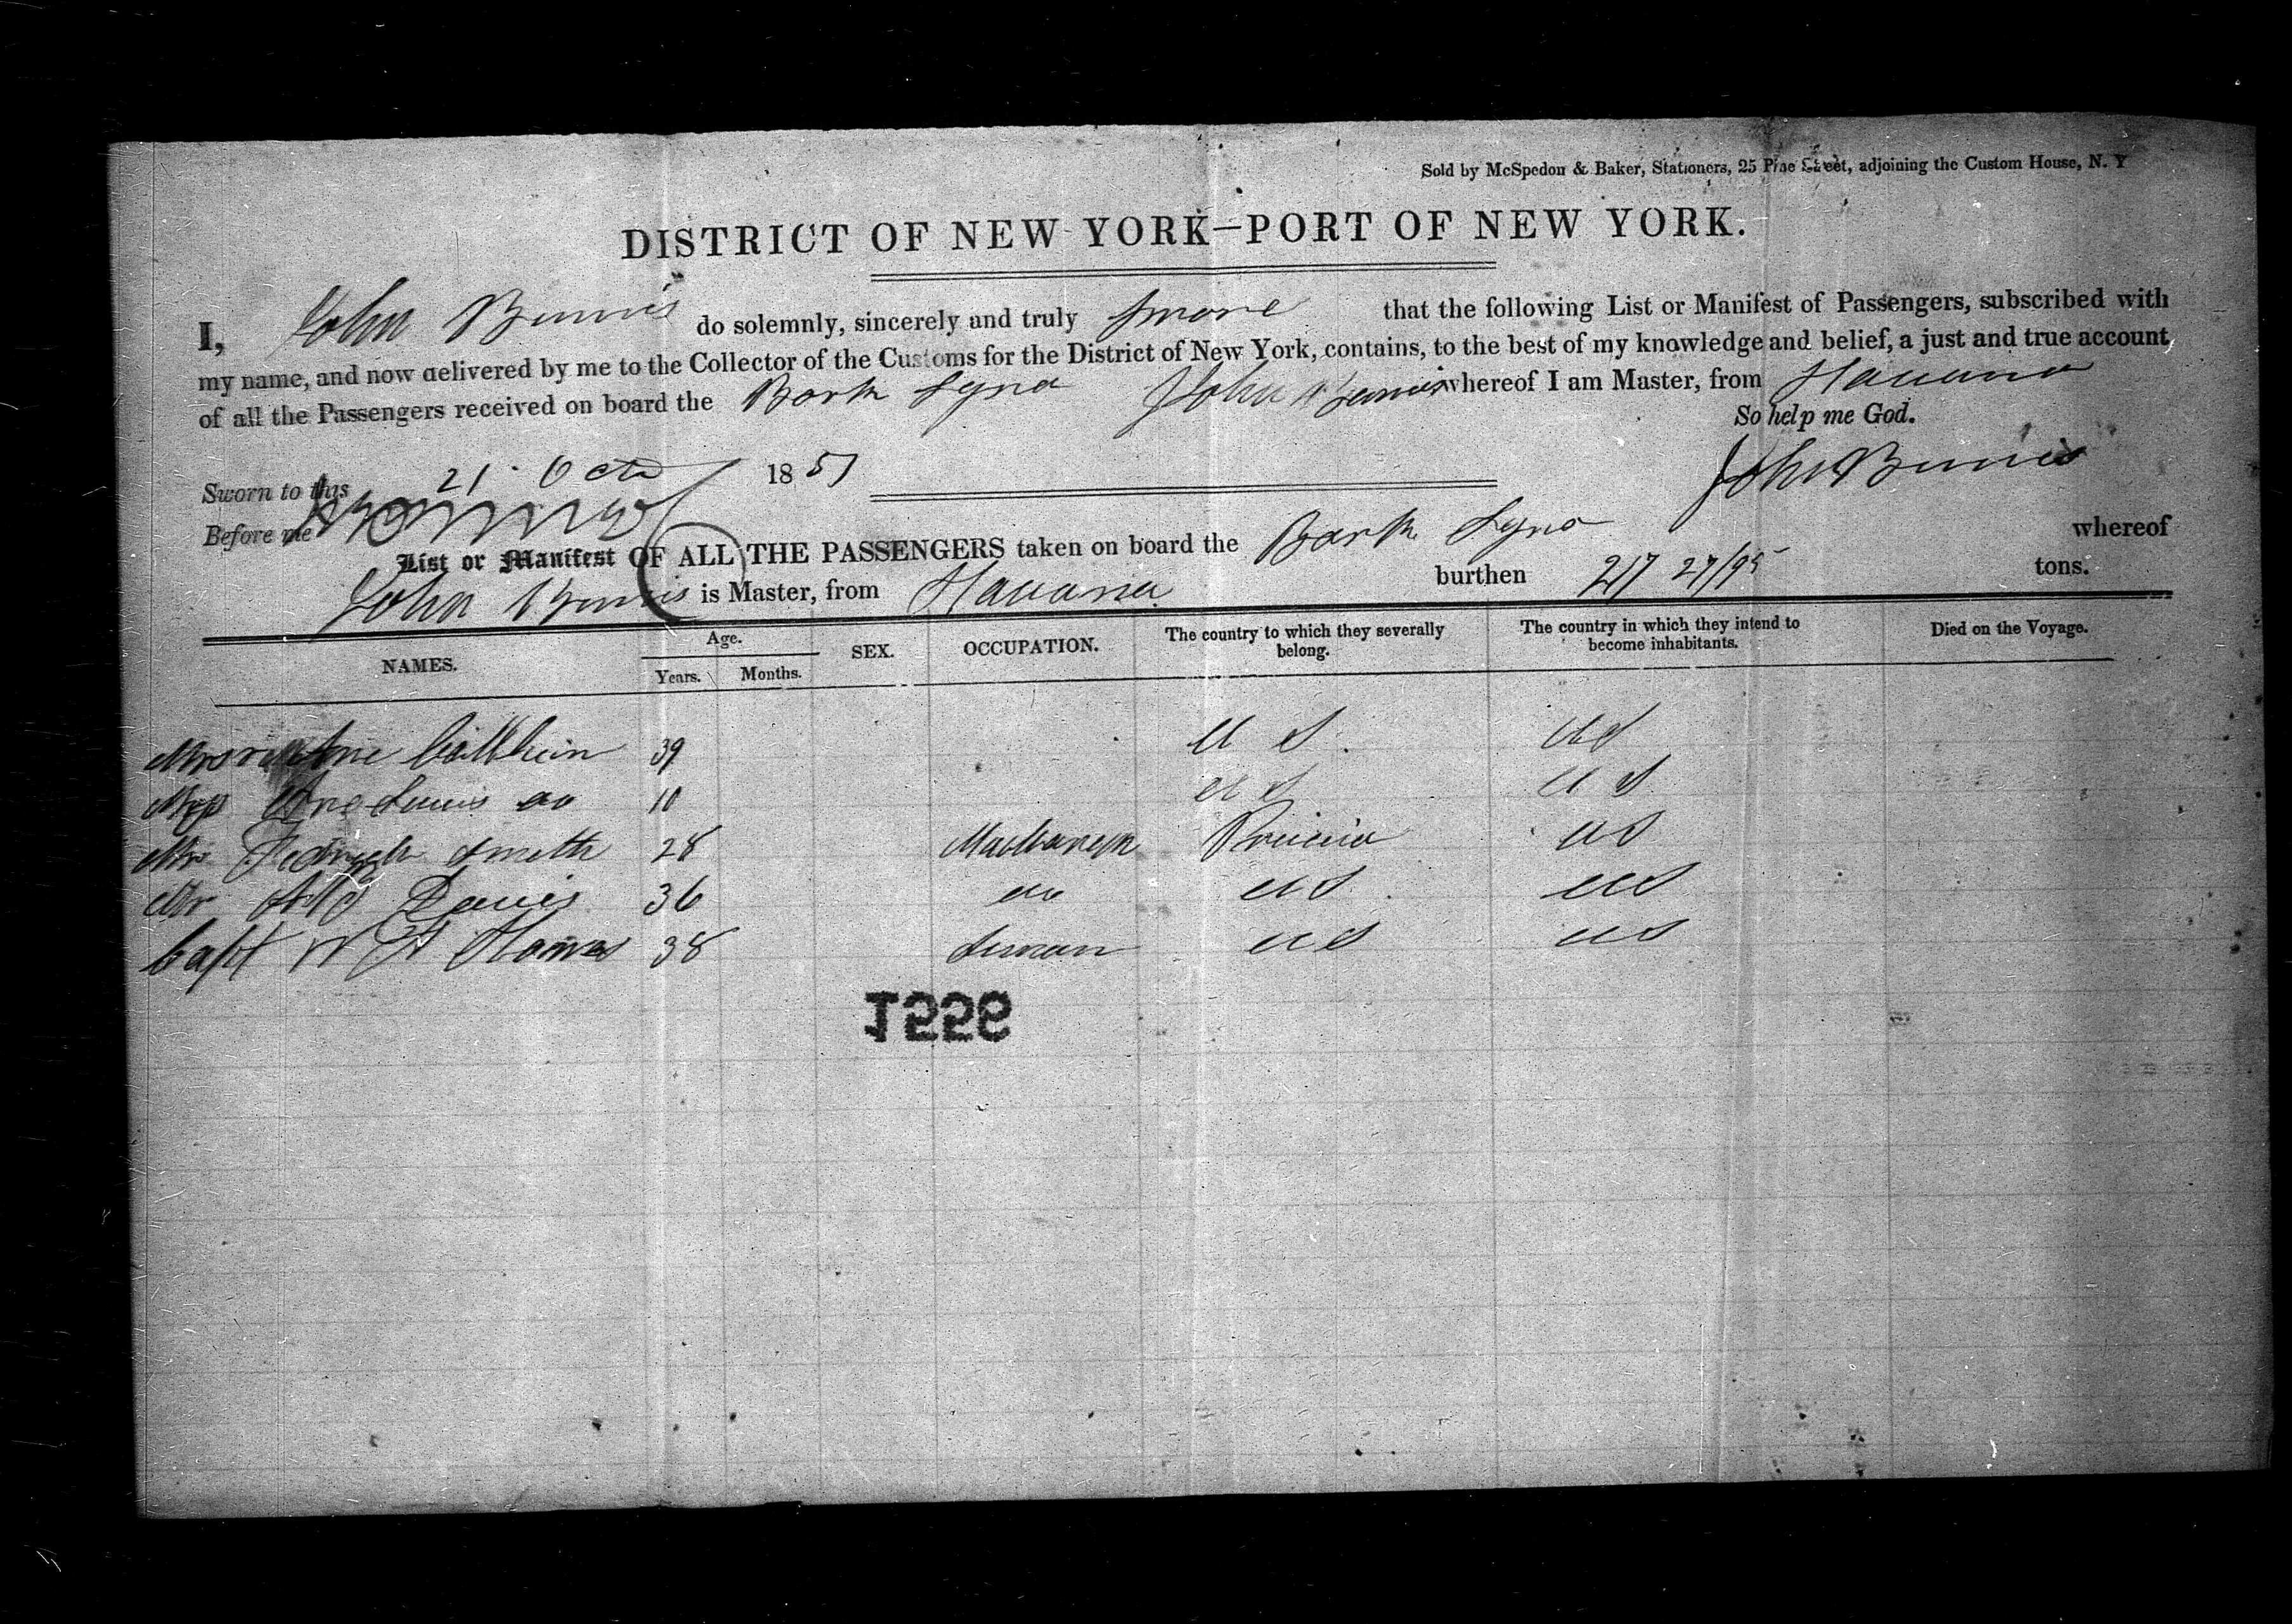 Sold by McSpedon & Baker, Stationers, 25 Pine Street, adjoining the Custom House, N. Y
DISTRICT OF NEW YORK—PORT OF NEW YORK.
I, John do solemnly, sincerely and truly that the following List or Manifest of Passengers, subscribed with
my name, and now delivered by me to the Collector of the Customs for the District of New York, contains, to the best of my knowledge and belief, a just and true account
of all the Passengers received on board the Bark John whereof I am Master, from Havana
So help me God.
Sworn to this 21 Octo 1851
John
Before me
List or Manifest OF ALL THE PASSENGERS taken on board the Bark whereof
John is Master, from Havana burthen 217 27/95 tons.
NAMES. Age. Years. Months. SEX. OCCUPATION. The country to which they severally belong. The country in which they intend to become inhabitants. Died on the Voyage.
Mrs 39 U S. US
do 10 U S U S
Mr Smith 28 US
Mr Davis 36 do US US
Capt W 38 US US
1556